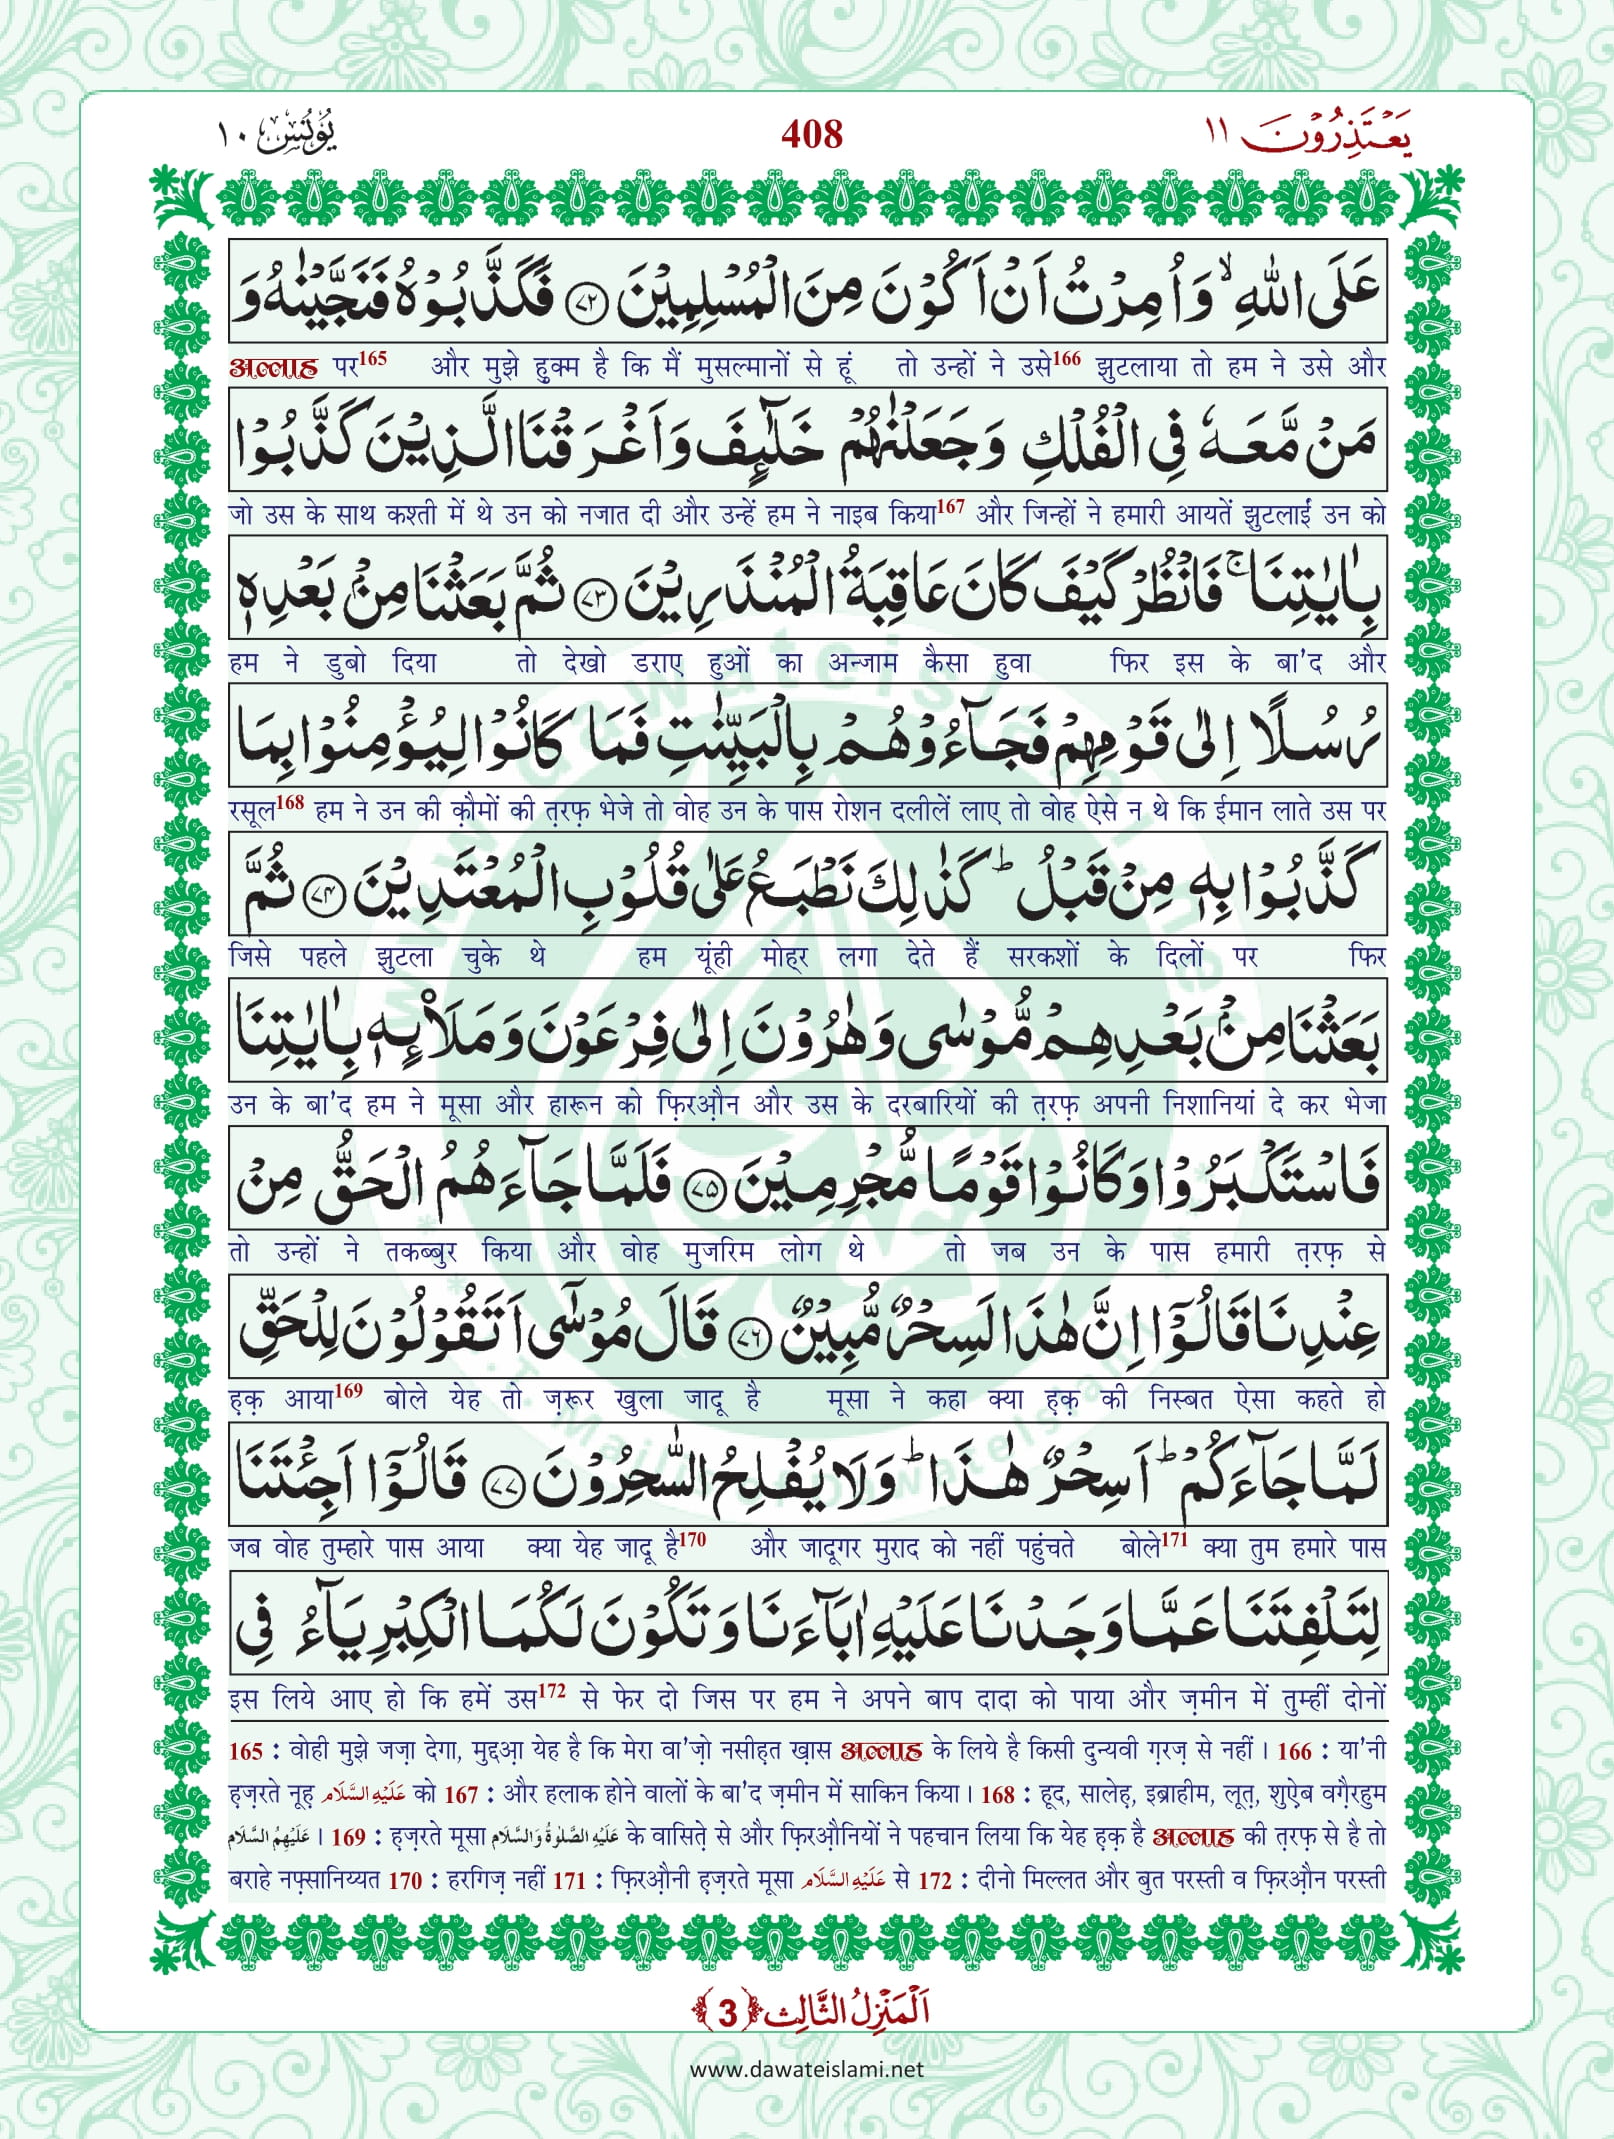 يَعْتَذِرُوْنَ ١١
408
يُوْنُس ١٠
عَلَى اللّٰهِ ۙ وَ اُمِرْتُ اَنْ اَكُوْنَ مِنَ الْمُسْلِمِیْنَ ﴿۷۲﴾ فَكَذَّبُوْهُ فَنَجَّیْنٰهُ وَ
अल्लाह पर165 और मुझे हुक्म है कि मैं मुसल्मानों से हूं तो उन्हों ने उसे166 झुटलाया तो हम ने उसे और
مَنْ مَّعَهٗ فِی الْفُلْكِ وَ جَعَلْنٰهُمْ خَلٰٓىِٕفَ وَ اَغْرَقْنَا الَّذِیْنَ كَذَّبُوْا
जो उस के साथ कश्ती में थे उन को नजात दी और उन्हें हम ने नाइब किया167 और जिन्हों ने हमारी आयतें झुटलाईं उन को
بِاٰیٰتِنَا ۚ فَانْظُرْ كَیْفَ كَانَ عَاقِبَةُ الْمُنْذَرِیْنَ ﴿۷۳﴾ ثُمَّ بَعَثْنَا مِنْۢ بَعْدِهٖ
हम ने डुबो दिया तो देखो डराए हुओं का अन्जाम कैसा हुवा फिर इस के बा'द और
رُسُلًا اِلٰى قَوْمِهِمْ فَجَآءُوْهُمْ بِالْبَیِّنٰتِ فَمَا كَانُوْا لِیُؤْمِنُوْا بِمَا
रसूल168 हम ने उन की क़ौमों की त़रफ़ भेजे तो वोह उन के पास रोशन दलीलें लाए तो वोह ऐसे न थे कि ईमान लाते उस पर
كَذَّبُوْا بِهٖ مِنْ قَبْلُ ؕ كَذٰلِكَ نَطْبَعُ عَلٰى قُلُوْبِ الْمُعْتَدِیْنَ ﴿۷۴﴾ ثُمَّ
जिसे पहले झुटला चुके थे हम यूंही मोहर लगा देते हैं सरकशों के दिलों पर फिर
بَعَثْنَا مِنْۢ بَعْدِهِمْ مُّوْسٰى وَ هٰرُوْنَ اِلٰى فِرْعَوْنَ وَ مَلَاۡىِٕهٖ بِاٰیٰتِنَا
उन के बा'द हम ने मूसा और हारून को फ़िरऔ़न और उस के दरबारियों की त़रफ़ अपनी निशानियां दे कर भेजा
فَاسْتَكْبَرُوْا وَ كَانُوْا قَوْمًا مُّجْرِمِیْنَ ﴿۷۵﴾ فَلَمَّا جَآءَهُمُ الْحَقُّ مِنْ
तो उन्हों ने तकब्बुर किया और वोह मुजरिम लोग थे तो जब उन के पास हमारी त़रफ़ से
عِنْدِنَا قَالُوْۤا اِنَّ هٰذَا لَسِحْرٌ مُّبِیْنٌ ﴿۷۶﴾ قَالَ مُوْسٰۤى اَتَقُوْلُوْنَ لِلْحَقِّ
ह़क़ आया169 बोले येह तो ज़रूर खुला जादू है मूसा ने कहा क्या ह़क़ की निस्बत ऐसा कहते हो
لَمَّا جَآءَكُمْ ؕ اَسِحْرٌ هٰذَا ؕ وَ لَا یُفْلِحُ السّٰحِرُوْنَ ﴿۷۷﴾ قَالُوْۤا اَجِئْتَنَا
जब वोह तुम्हारे पास आया क्या येह जादू है170 और जादूगर मुराद को नहीं पहुंचते बोले171 क्या तुम हमारे पास
لِتَلْفِتَنَا عَمَّا وَجَدْنَا عَلَیْهِ اٰبَآءَنَا وَ تَكُوْنَ لَكُمَا الْكِبْرِیَآءُ فِی
इस लिये आए हो कि हमें उस172 से फेर दो जिस पर हम ने अपने बाप दादा को पाया और ज़मीन में तुम्हीं दोनों
165 : वोही मुझे जज़ा देगा, मुद्दआ़ येह है कि मेरा वा'ज़ो नसीह़त ख़ास अल्लाह के लिये है किसी दुन्यवी ग़रज़ से नहीं । 166 : या'नी
ह़ज़रते नूह़ عَلَيْهِ السَّلَام को 167 : और हलाक होने वालों के बा'द ज़मीन में साकिन किया । 168 : हूद, सालेह़, इब्राहीम, लूत़, शुऐ़ब वग़ैरहुम
عَلَيْهِمُ السَّلَام । 169 : ह़ज़रते मूसा عَلَيْهِ الصَّلٰوةُ وَالسَّلَام के वासित़े से और फ़िरऔ़नियों ने पहचान लिया कि येह ह़क़ है अल्लाह की त़रफ़ से है तो
बराहे नफ़्सानिय्यत 170 : हरगिज़ नहीं 171 : फ़िरऔ़नी ह़ज़रते मूसा عَلَيْهِ السَّلَام से 172 : दीनो मिल्लत और बुत परस्ती व फ़िरऔ़न परस्ती
اَلْمَنْزِلُ الثَّالِث ﴿3﴾
www.dawateislami.net